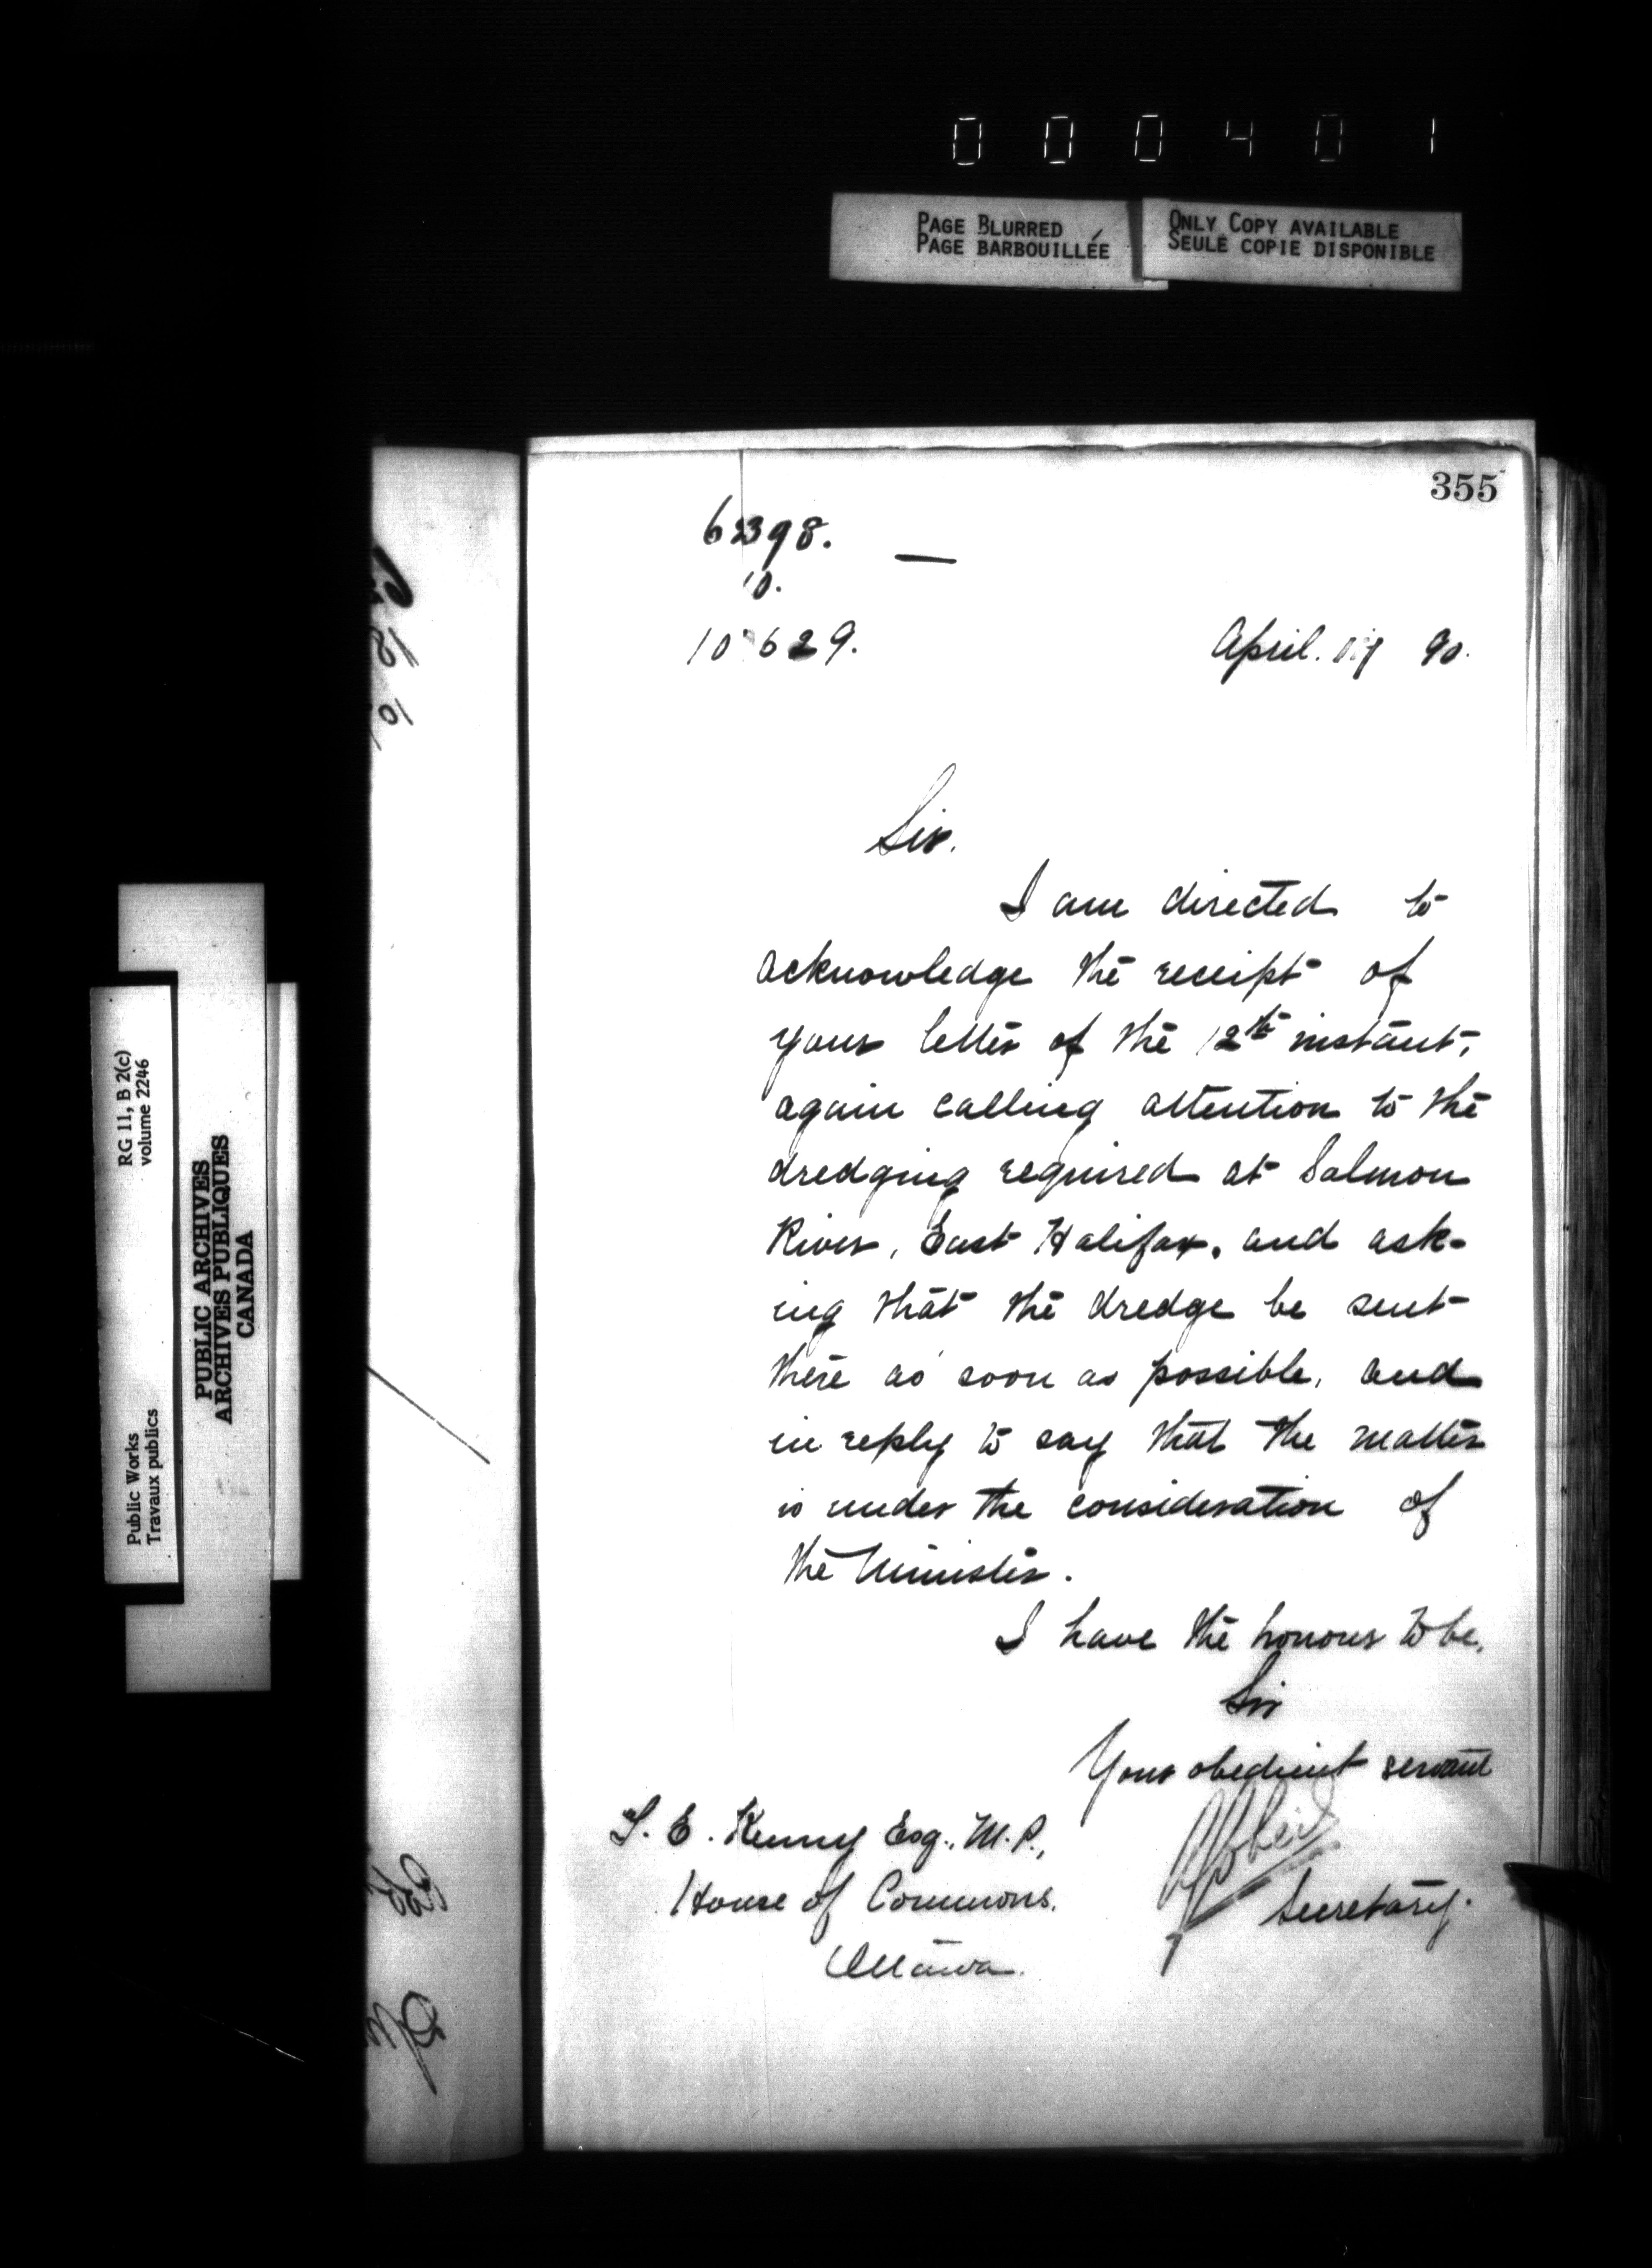 0 0 0 4 0 1
PAGE BLURRED
PAGE BARBOUILLÉE
ONLY COPY AVAILABLE
SEULE COPIE DISPONIBLE
355
62398.
10.
10629.
April. 17 90.
Sir.
I am directed to
acknowledge the receipt of
your letter of the 12th instant,
again calling attention to the
dredging required at Salmon
River, East Halifax, and ask-
ing that the dredge be sent
there as soon as possible, and
in reply to say that the matter
is under the consideration of
the Minister.
I have the honour to be,
Sir
Your obedient servant
Secretary.
T. E. Kenny Esq. M.P.,
House of Commons.
Ottawa.
RG 11, B 2(c)
volume 2246
Public Works
Travaux publics
PUBLIC ARCHIVES
ARCHIVES PUBLIQUES
CANADA